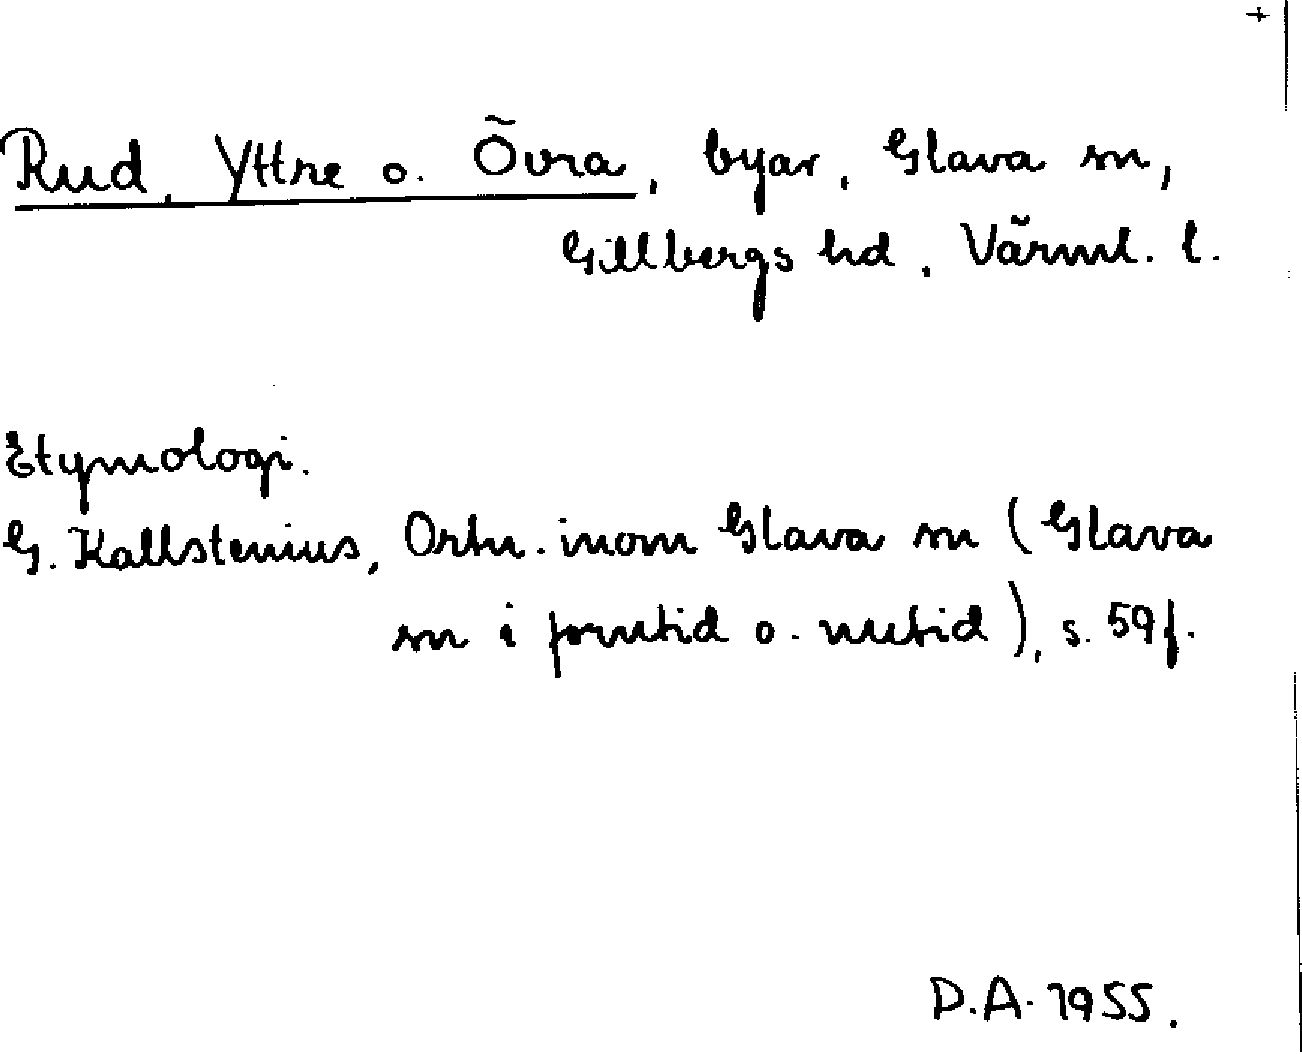 +
Rud, Yttre o. Övra, byar, Glava sn,
Gillbergs hd, Värml. l.
Etymologi.
G. Kallstenius, Ortn. inom Glava sn (Glava
sn i forntid o. nutid), s. 59f.
D.A. 1955.